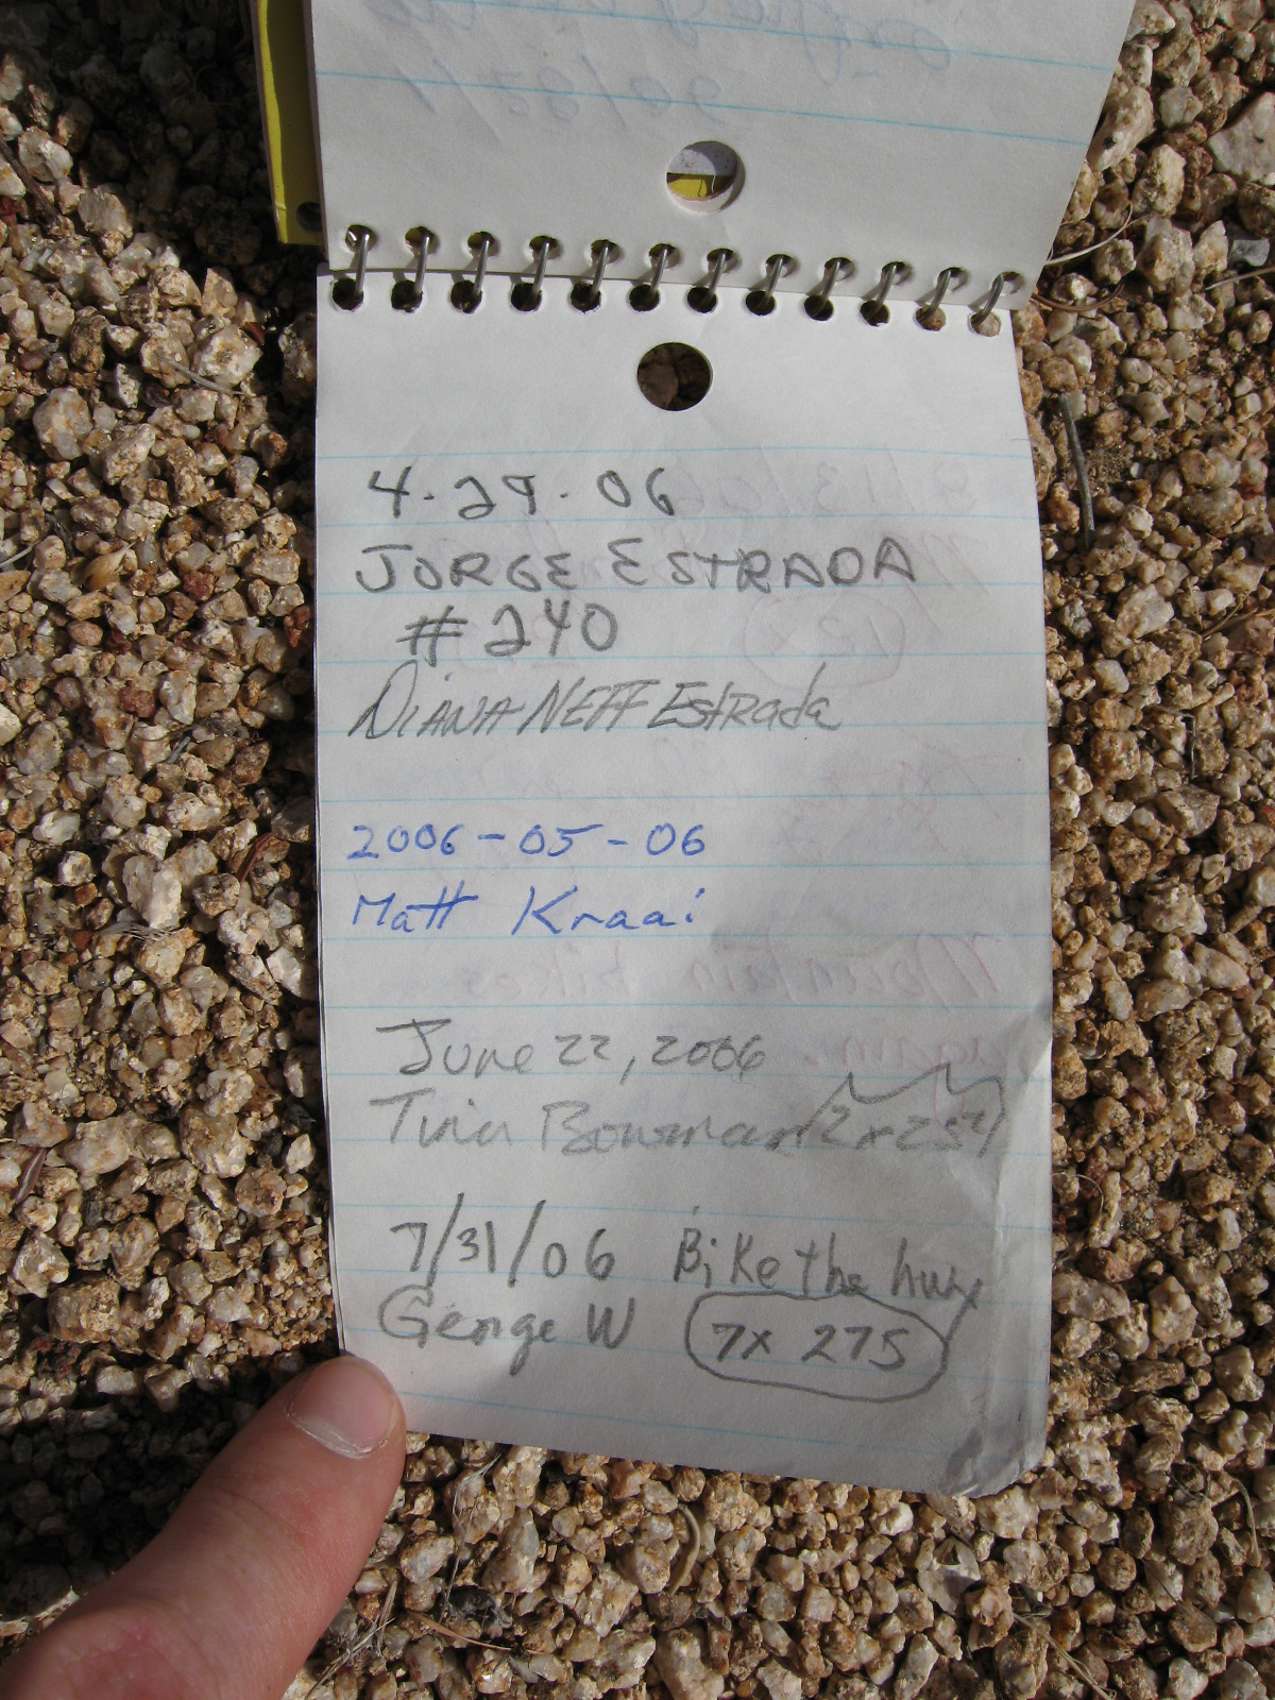 4-29-06
JORGE ESTRADA
#240
DIANA NEFF EStRada
2006-05-06
Matt Kraai
June 22, 2006
Tina Bowman
7/31/06 Bike the hwy
George W 7x 275